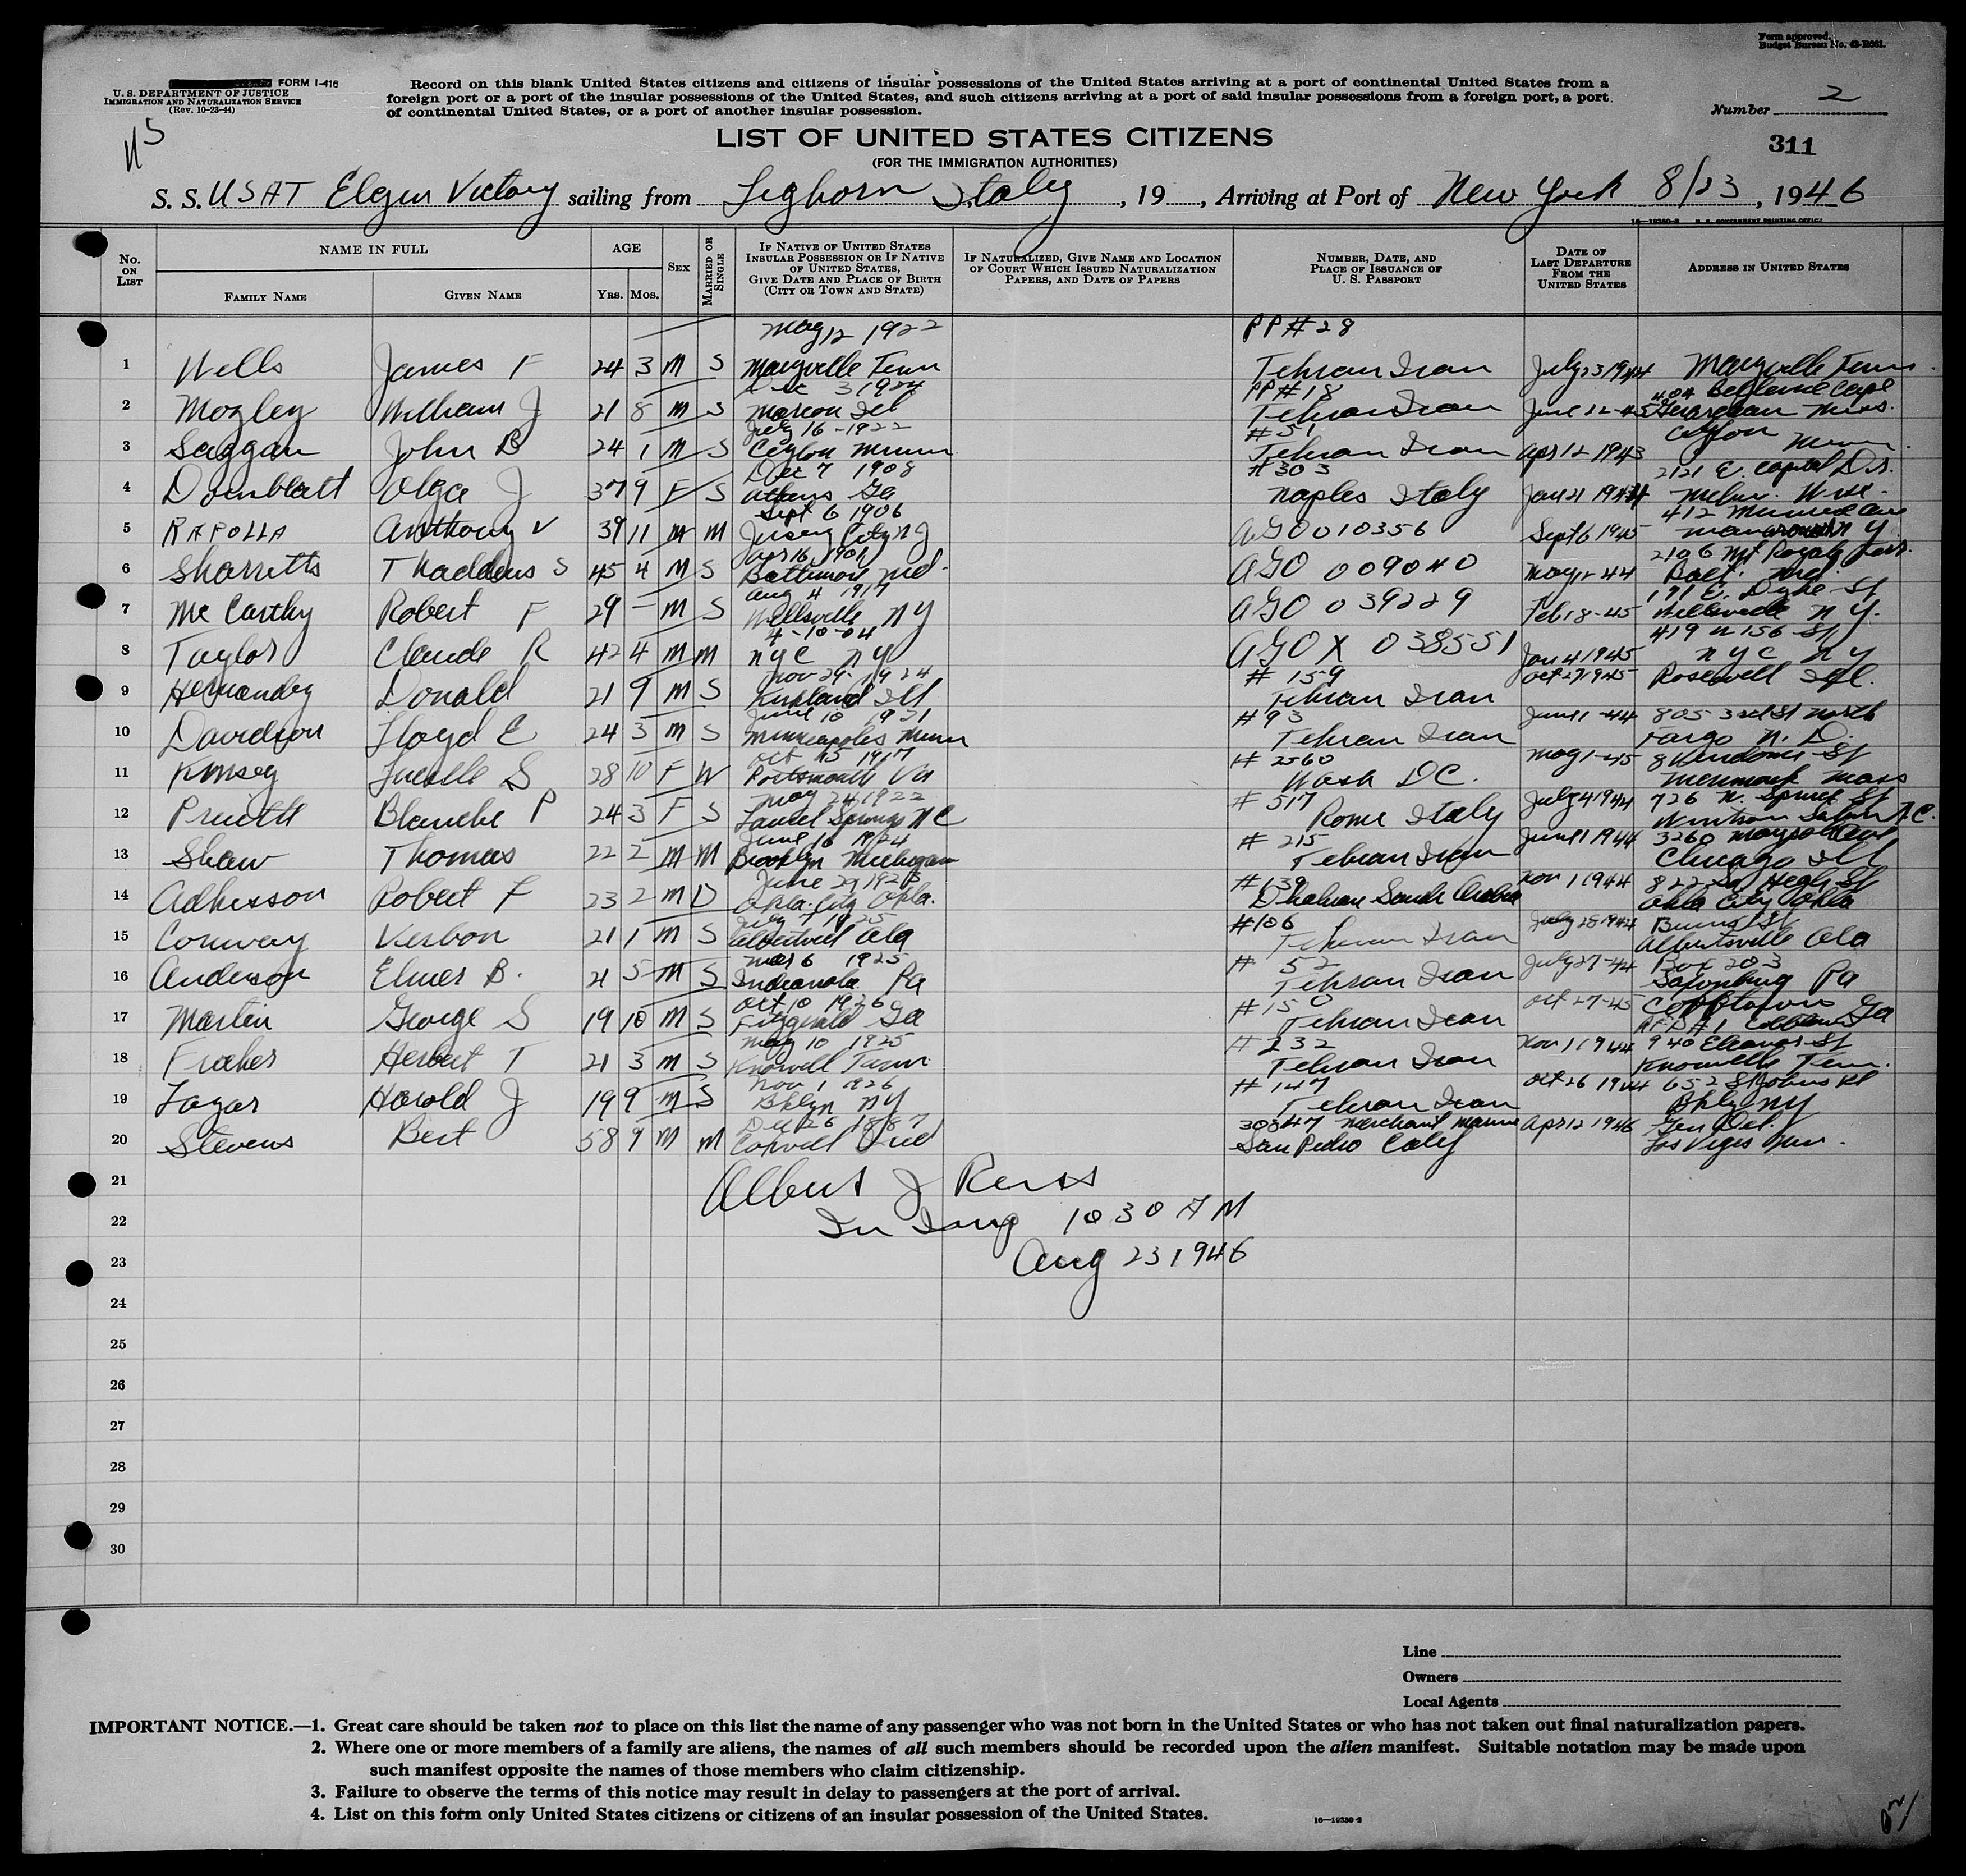 Form approved.
Budget Bureau No. 43-R061.
FORM I-416
U. S. DEPARTMENT OF JUSTICE
IMMIGRATION AND NATURALIZATION SERVICE
(Rev. 10-23-44)
Record on this blank United States citizens and citizens of insular possessions of the United States arriving at a port of continental United States from a
foreign port or a port of the insular possessions of the United States, and such citizens arriving at a port of said insular possessions from a foreign port, a port
of continental United States, or a port of another insular possession.
Number 2
LIST OF UNITED STATES CITIZENS
311
(FOR THE IMMIGRATION AUTHORITIES)
S. S. USAT Elgin Victory sailing from Leghorn Italy, 19 , Arriving at Port of New York 8/23, 1946
16—19250-2 U. S. GOVERNMENT PRINTING OFFICE
No. ON LIST
NAME IN FULL
FAMILY NAME
GIVEN NAME
AGE
YRS. MOS.
SEX
MARRIED OR SINGLE
IF NATIVE OF UNITED STATES INSULAR POSSESSION OR IF NATIVE OF UNITED STATES, GIVE DATE AND PLACE OF BIRTH (CITY OR TOWN AND STATE)
IF NATURALIZED, GIVE NAME AND LOCATION OF COURT WHICH ISSUED NATURALIZATION PAPERS, AND DATE OF PAPERS
NUMBER, DATE, AND PLACE OF ISSUANCE OF U. S. PASSPORT
DATE OF LAST DEPARTURE FROM THE UNITED STATES
ADDRESS IN UNITED STATES
May 12 1922 PP # 28
1 Wells James F 24 3 M S Maryville Tenn Tehran Iran July 23 1944 Maryville Tenn.
Dec 3 1924 PP # 18 404
2 Mozley William J 21 8 M S Marion Ill Tehran Iran June 12-45 Miss.
July 16-1922 # 51 Ceylon
3 Saggau John B 24 1 M S Ceylon Minn Tehran Iran Apr 12 1943 Minn.
Dec 7 1908 # 303 2121 E. Capitol Dr.
4 Dornblatt Olga J 37 9 F S Athens Ga Naples Italy Jan 21 1944 Milw. Wisc.
Sept 6 1906 412 Ave
5 RAPOLLA Anthony V 39 11 M M Jersey City N J AGO 010356 Sept 6 1945 N Y
Apr 16 1901 2106 Mt Royal Terr.
6 Sharretts Thaddeus S 45 4 M S Baltimore Md. AGO 009040 May 12-44 Balt. Md.
Aug 4 1917 191 E. Dyke St
7 McCarthy Robert F 29 – M S Wellsville NY AGO 039229 Feb 18-45 Wellsville N Y.
4-10-04 419 W 156 St
8 Taylor Claude R 42 4 M M NYC NY AGO X 038551 Jan 4 1945 NYC NY
Nov 29-1924 # 159
9 Hernandez Donald 21 9 M S Kirkland Ill Tehran Iran Oct 27 1945 Ill.
June 10 1921 # 93 805 3rd St North
10 Davidson Floyd E 24 3 M S Minneapolis Minn Tehran Iran June 1-44 Fargo N. D.
Oct 15 1917 # 2560
11 Kinsey Lucille S 28 10 F W Portsmouth Va Wash DC. May 1-45 Mass
May 24 1922 # 517 726 N. Spruce St
12 Pruitt Blanche P 24 3 F S Laurel Springs NC Rome Italy July 4 1944 Winston Salem N.C.
June 16 1924 # 215 3260
13 Shaw Thomas 22 2 M M Brooklyn Michigan Tehran Iran June 1 1944 Chicago Ill
June 29 1923 # 139 822 So High St
14 Adkisson Robert F 23 2 M D Okla. City Okla. Dhahran Saudi Arabia Nov 1 1944 Okla City Okla
July 7 1925 #106
15 Conway Verbon 21 1 M S Albertvill Ala Tehran Iran July 28 1944 Albertsville Ala
Mar 6 1925 # 52 Box 203
16 Anderson Elmer B. 21 5 M S Indianola Pa Tehran Iran July 27-44 Saxonburg Pa
Oct 10 1926 # 150 Cobbtown Ga
17 Martin George S 19 10 M S Fitzgerald Ga Tehran Iran Oct-27-45 RFD #1 Cobbtown
May 10 1925 # 232 940 Eleanor St
18 Fraker Herbert T 21 3 M S Knoxvill Tenn Tehran Iran Nov 1 1944 Knoxville Tenn.
Nov 1 1926 # 147 652 St Johns Pl
19 Lazar Harold J 19 9 M S Bklyn NY Tehran Iran Oct 26 1944 Bkly NY
Dec 26 1887 30047 Merchant Marine Gen Del.
20 Stevens Bert 58 9 M M Ind San Pedro Calif Apr 12 1946 Las Vegas Nev.
21
Albert J Reiss
22
10 30 AM
23
Aug 23 1946
24
25
26
27
28
29
30
Line
Owners
Local Agents
IMPORTANT NOTICE.—1. Great care should be taken not to place on this list the name of any passenger who was not born in the United States or who has not taken out final naturalization papers.
2. Where one or more members of a family are aliens, the names of all such members should be recorded upon the alien manifest. Suitable notation may be made upon
such manifest opposite the names of those members who claim citizenship.
3. Failure to observe the terms of this notice may result in delay to passengers at the port of arrival.
4. List on this form only United States citizens or citizens of an insular possession of the United States.
16—19250-2